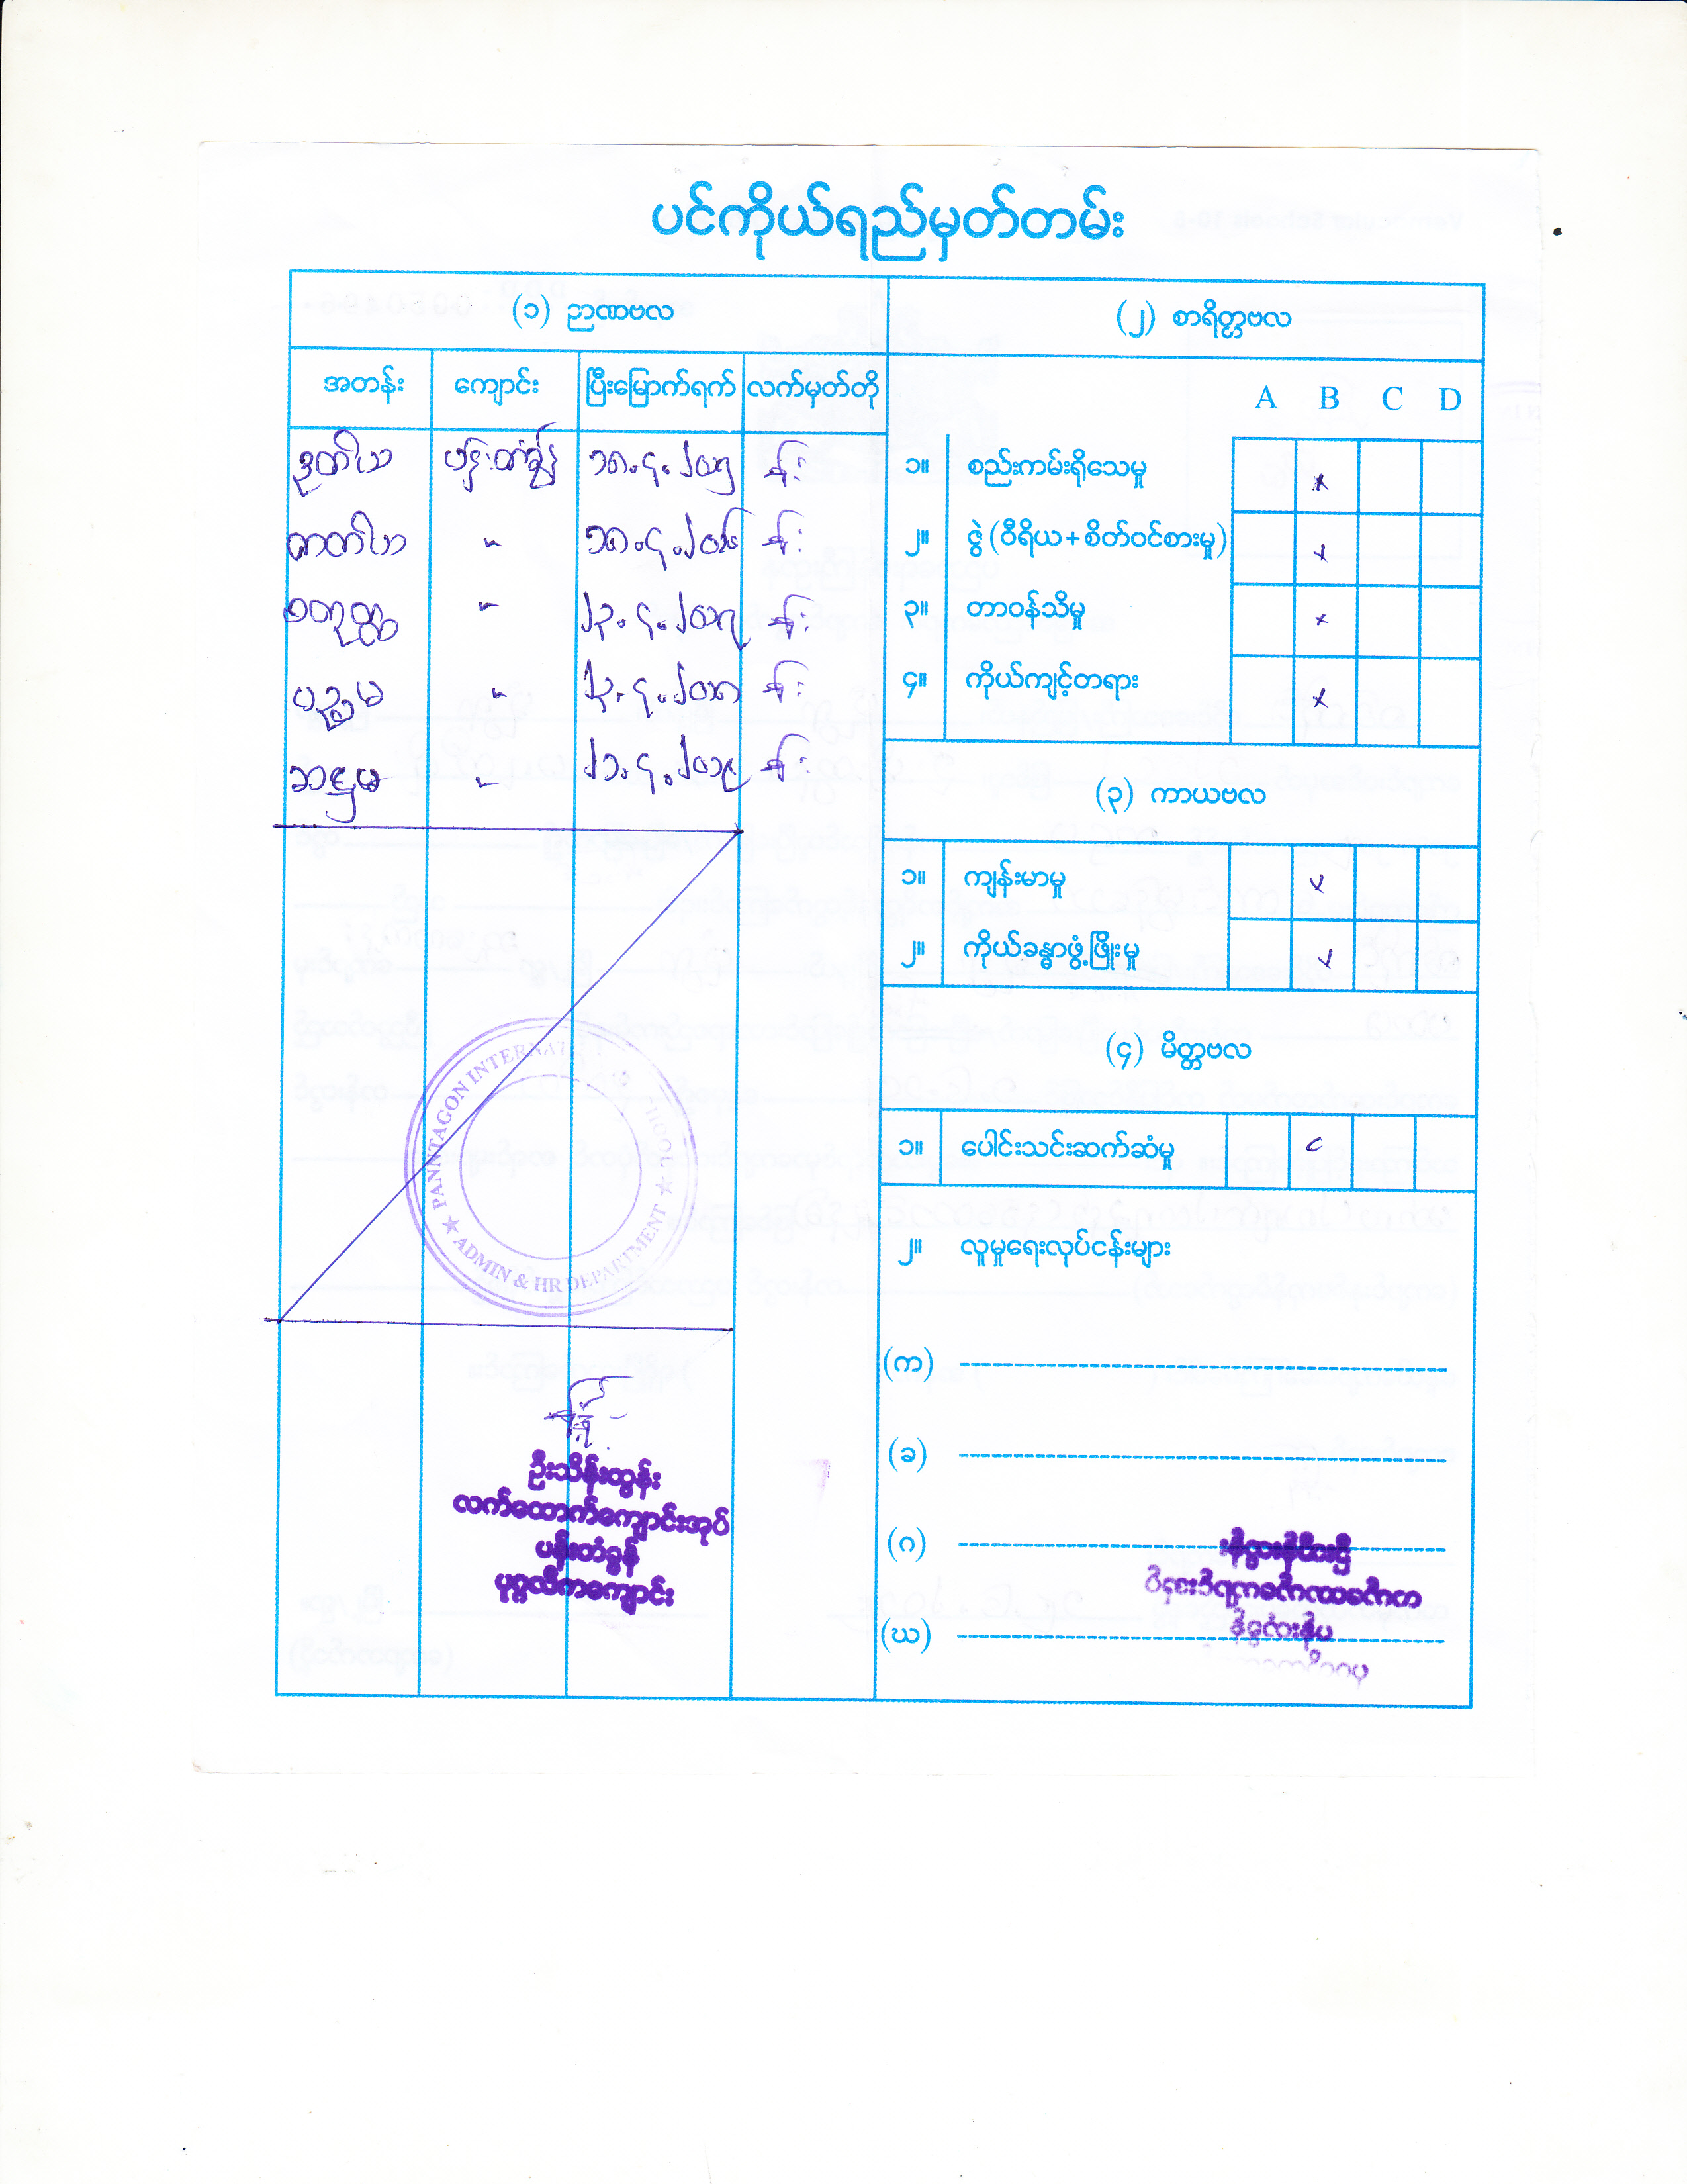 ပင်ကိုယ်ရည်မှတ်တမ်း
(၁) ဉာဏဗလ
အတန်း ကျောင်း ပြီးမြောက်ရက် လက်မှတ်တို
ဒုတိယ ပန်းတံခွန် ၁၈.၄.၂၀၁၅
တတိယ " ၁၈.၄.၂၀၁၆
စတုတ္ထ " ၂၃.၄.၂၀၁၇
ပဉ္စမ " ၂၃.၄.၂၀၁၈
ဆဋ္ဌမ " ၂၁.၄.၂၀၁၉
PANNTAGON INTERNAT
ADMIN & HR DEPARTMENT
ဦးသိန်းထွန်း
လက်ထောက်ကျောင်းအုပ်
ပန်းတံခွန်
ပုဂ္ဂလိကကျောင်း
(၂) စာရိတ္တဗလ
A B C D
၁။ စည်းကမ်းရိုသေမှု x
၂။ ဇွဲ (ဝီရိယ + စိတ်ဝင်စားမှု)
၃။ တာဝန်သိမှု x
၄။ ကိုယ်ကျင့်တရား x
(၃) ကာယဗလ
၁။ ကျန်းမာမှု
၂။ ကိုယ်ခန္ဓာဖွံ့ဖြိုးမှု
(၄) မိတ္တဗလ
၁။ ပေါင်းသင်းဆက်ဆံမှု
၂။ လူမှုရေးလုပ်ငန်းများ
(က)
(ခ)
(ဂ)
(ဃ)